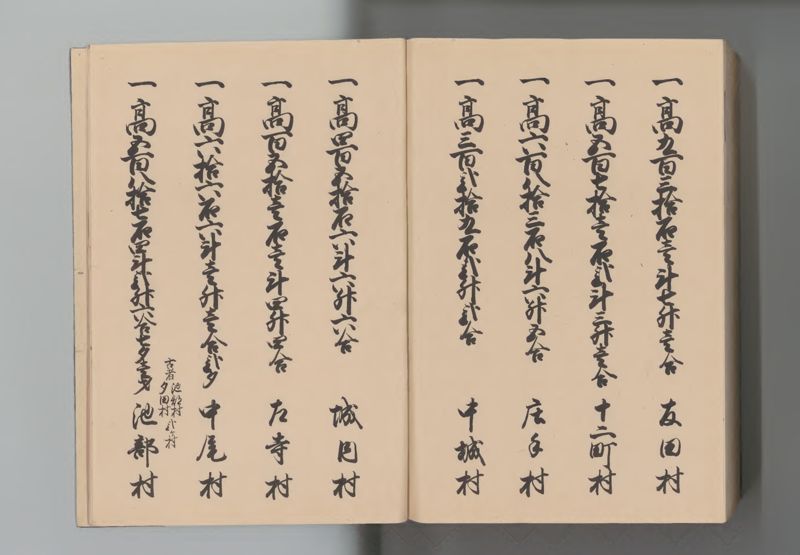 一高五百三拾石壱斗七升壱合 友田村
一高五百七拾壱石弐斗三升壱合 十二町村
一高六百八拾三石八斗六升五合 庄手村
一高三百弐拾五石弐升弐合 中城村
一高四百五拾石六斗六升六合 城内村
一高百五拾壱石壱斗四升四合 左寺村
一高六拾六石六斗壱升壱合弐夕 中尾村
一高五百八拾七石四斗弐升六合七夕壱才 池部村
古者 池部村
夕田村